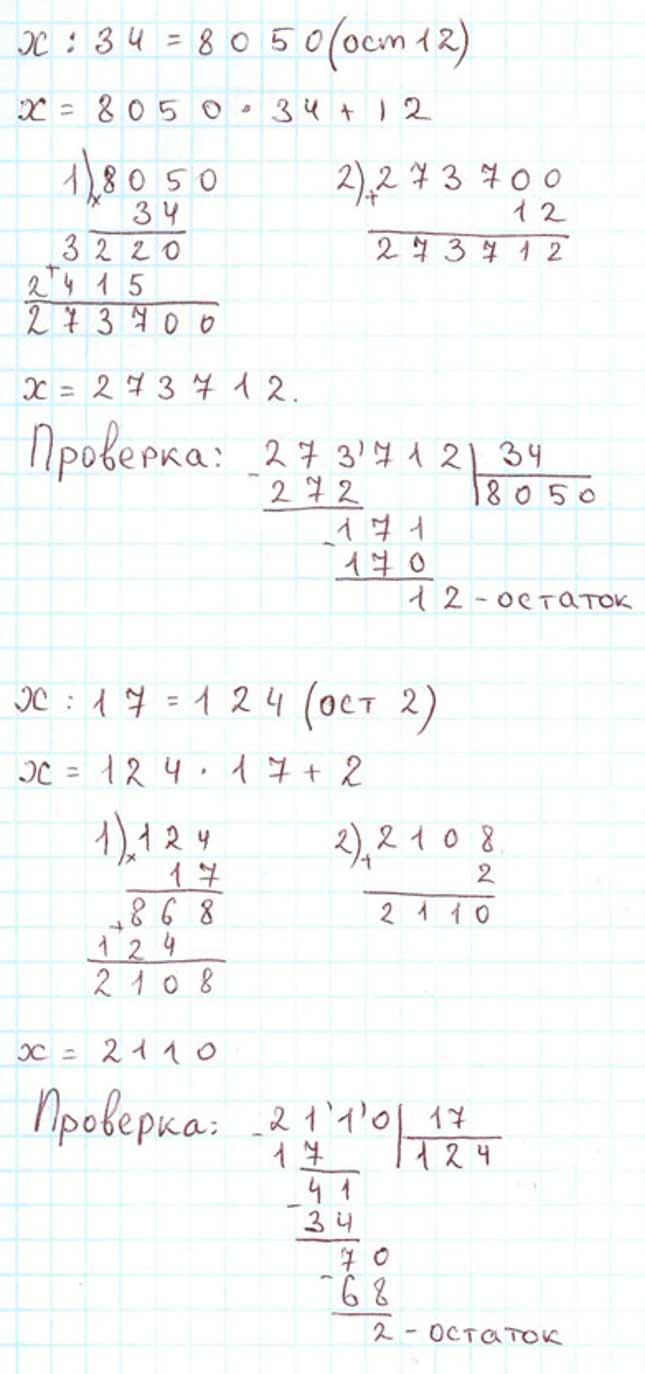 x : 34 = 8050 (ост 12)
x = 8050 · 34 + 12
1) 8050
×
34
3220
+
2415
273700
2) 273700
+
12
273712
x = 273712.
Проверка: 273'712 | 34
- 272 | 8050
171
- 170
12 - остаток
x : 17 = 124 (ост 2)
x = 124 · 17 + 2
1) 124
×
17
868
+
124
2108
2) 2108
+
2
2110
x = 2110
Проверка: - 21'1'0 | 17
17 | 124
41
- 34
70
- 68
2 - остаток